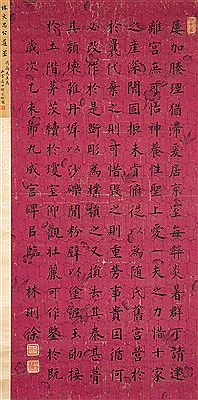 屢加腠理猶滯爰居京室每弊炎暑群下請建
離宮庶可怡神養性聖上愛一夫之力惜十家
之產深閉固拒未肯俯從以為隨代舊宮營
於曩代棄之則可惜毀之則重勞事貴因循何
必改作於是斲彫為樸損之又損去其泰甚葺
其頹壞雜丹墀以沙礫間粉壁以塗泥玉砌接
於土階茅茨續於瓊室仰觀壯麗可作鑒於既
歲次乙未節九成宮碑臨 林則徐
林文忠公遺墨